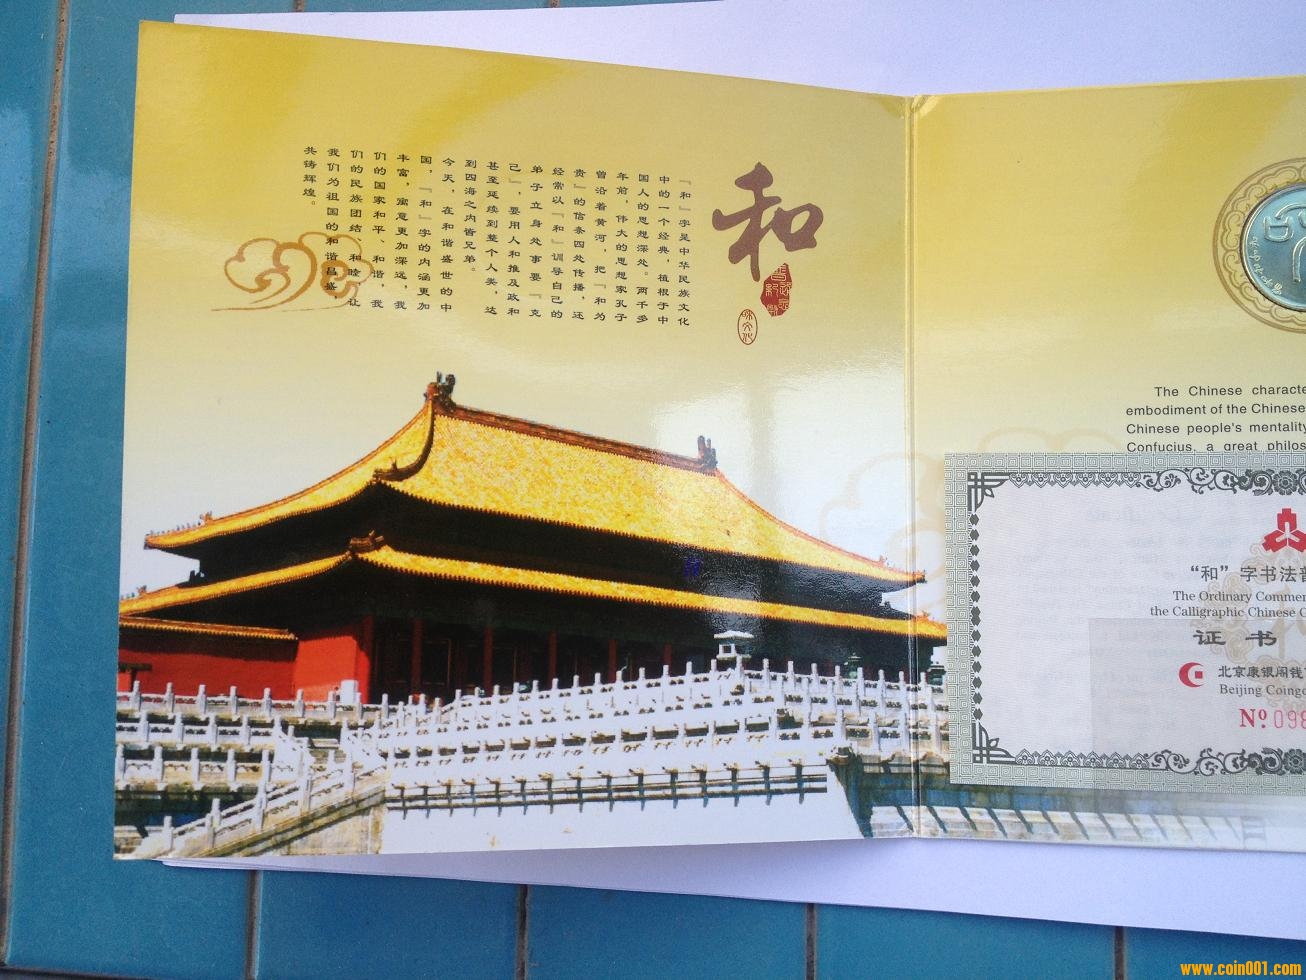 和
和文化
『和』字是中华民族文化
中的一个经典，植根于中
国人的思想深处。两千多
年前，伟大的思想家孔子
曾沿着黄河，把『和为
贵』的信条四处传播，还
经常以『和』训导自己的
弟子立身处事要『克
己』，要用人和推及政和
甚至延续到整个人类，达
到四海之内皆兄弟。
今天，在和谐盛世的中
国，『和』字的内涵更加
丰富，寓意更加深远，我
们的国家和平、和谐，我
们的民族团结、和睦，让
我们为祖国的和谐昌盛，
共铸辉煌。
The Chinese characte
embodiment of the Chinese
Chinese people's mentality
Confucius, a great philos
“和”字书法普
The Ordinary Commem
the Calligraphic Chinese C
证 书
北京康银阁钱
Beijing Coing
Nº 098
www.coin001.com